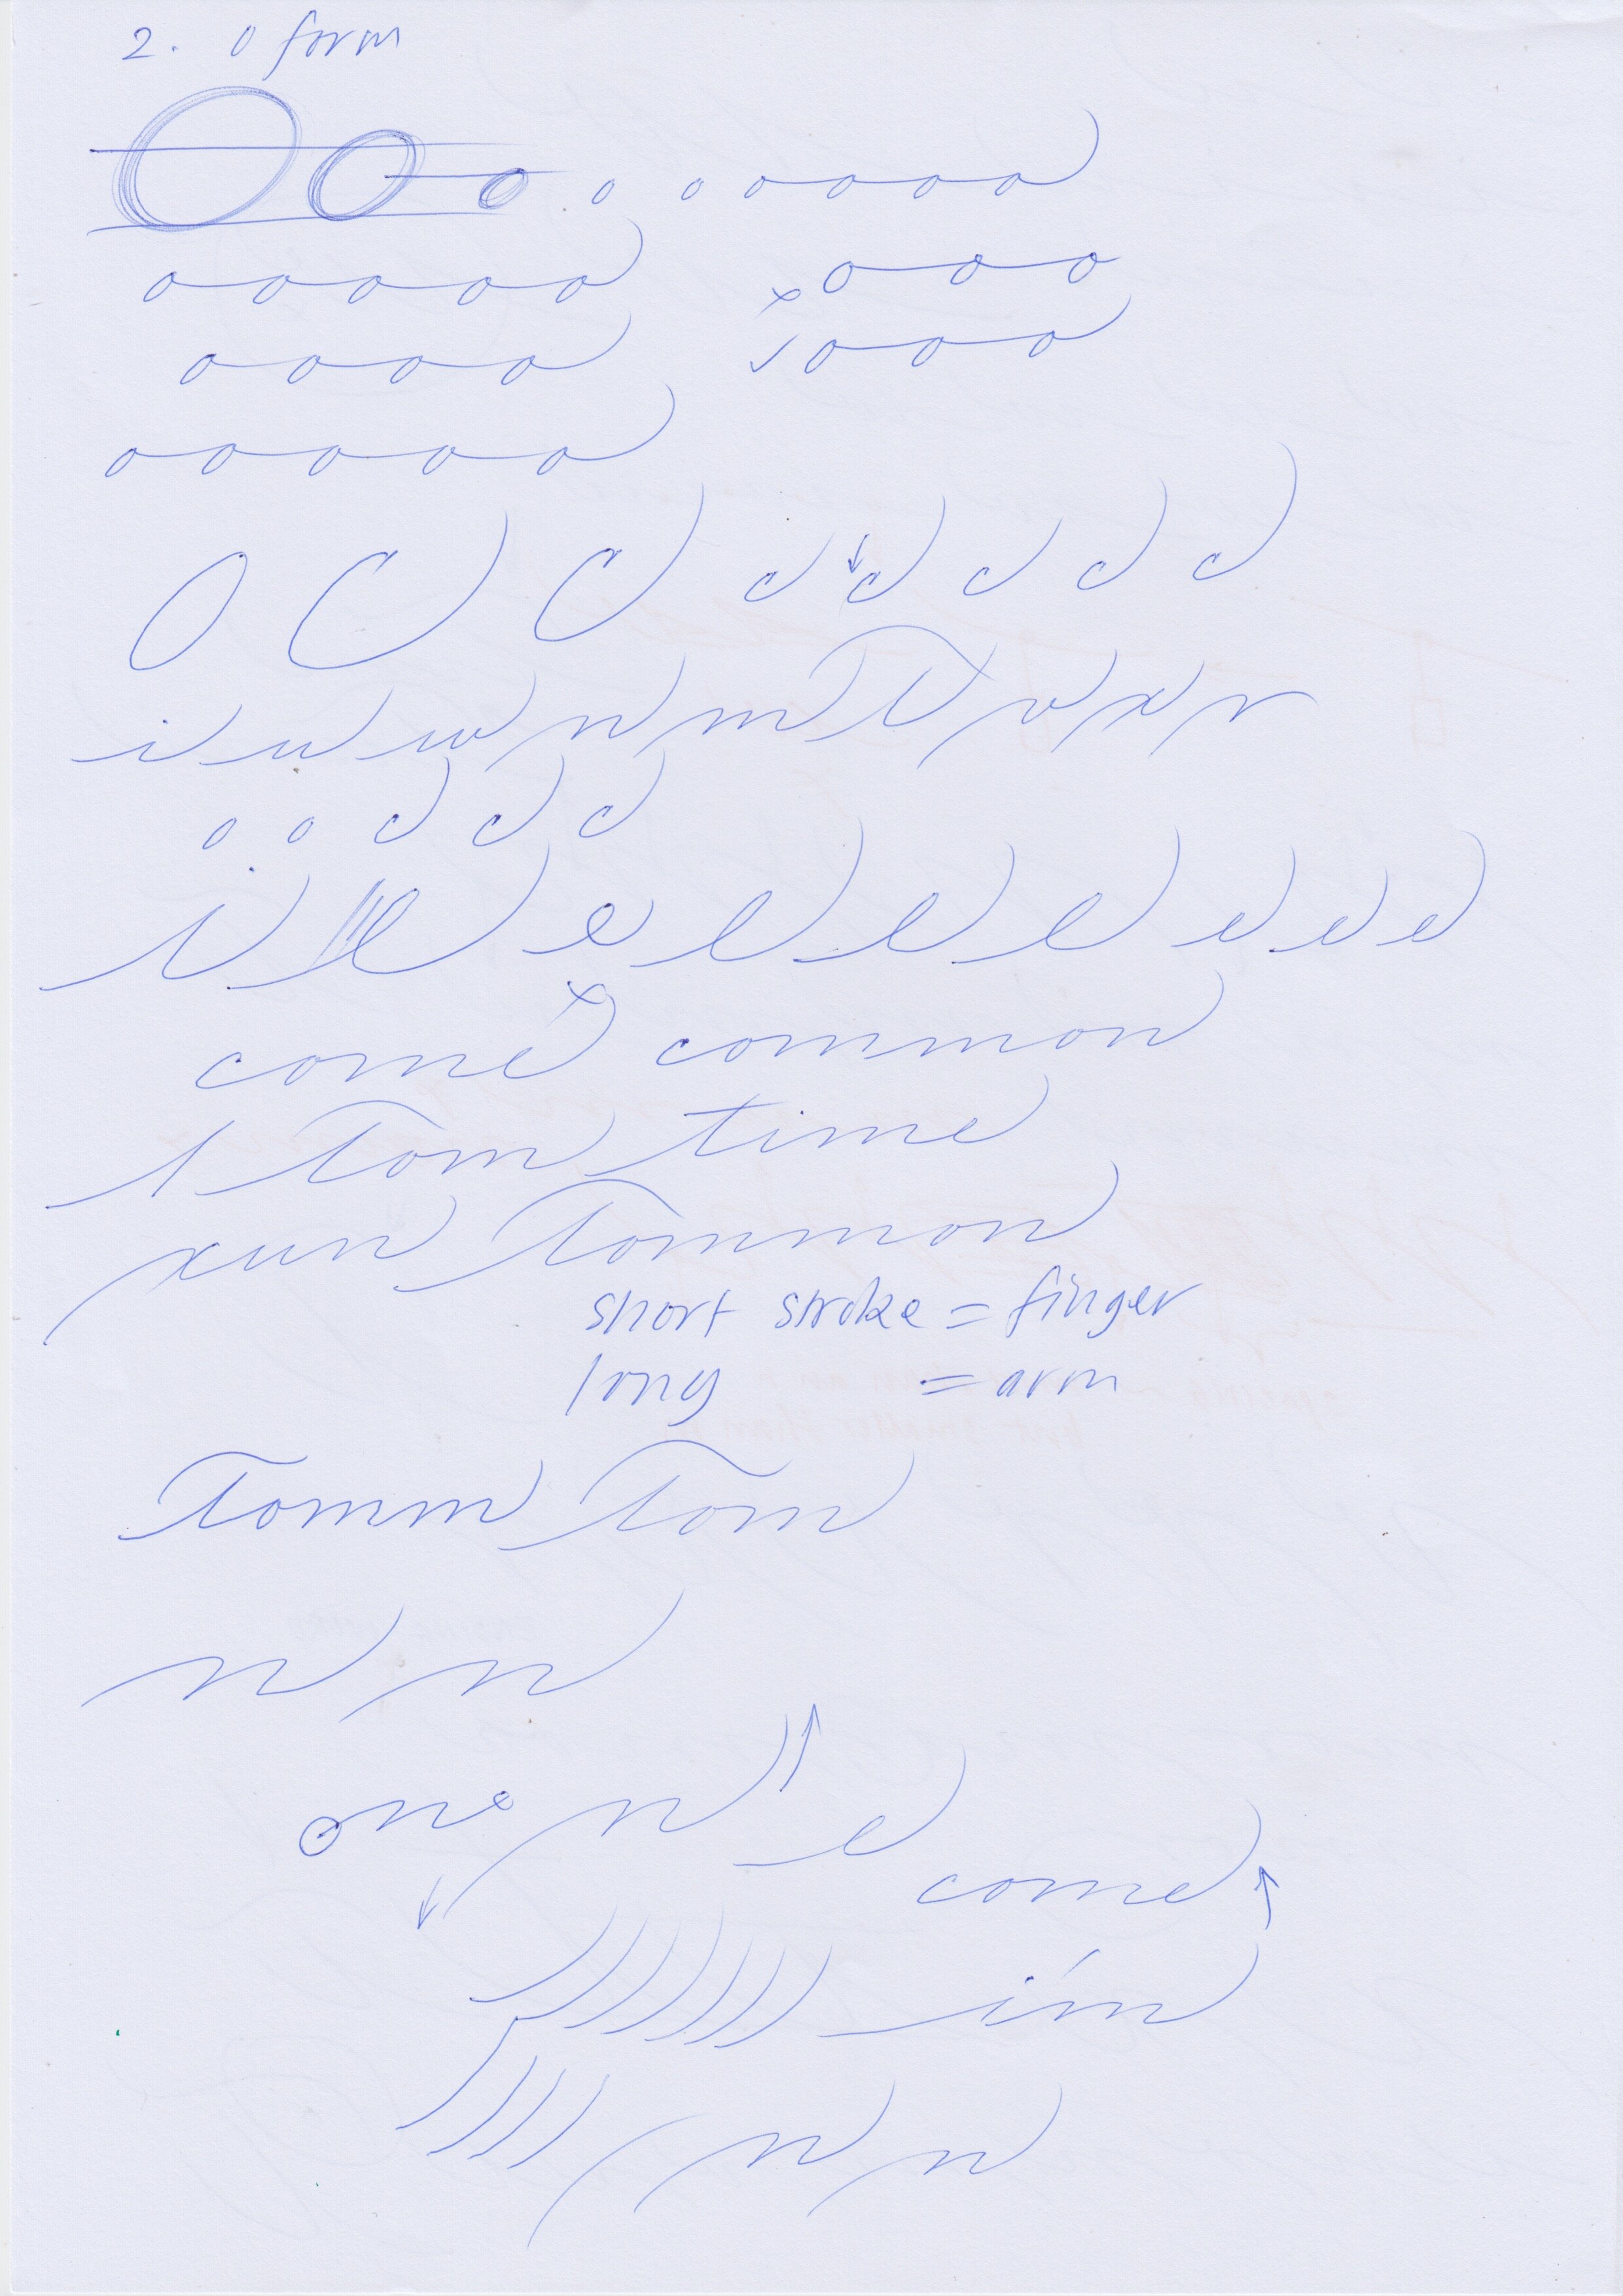 2. o form
O O o o o o o o o
o o o o o
x o o o
✓ o o o
o o o o
o o o o o
O C C c c c c c
i u w n m T v x r
o o c c c
e e e e e e e e
come x common
Tom time
xun Tommon
short stroke = finger
long = arm
Tomm Tom
n n
on x n e
come
im
n n